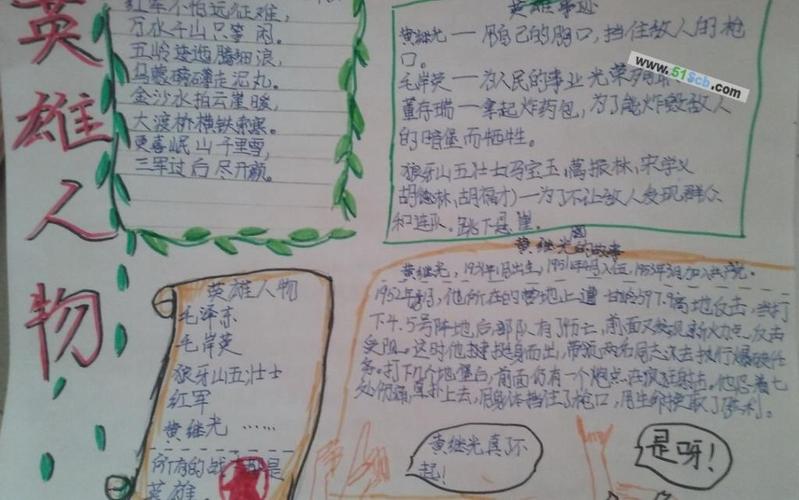 英雄人物
红军不怕远征难，
万水千山只等闲。
五岭逶迤腾细浪，
乌蒙磅礴走泥丸。
金沙水拍云崖暖，
大渡桥横铁索寒。
更喜岷山千里雪，
三军过后尽开颜。
英雄事迹
黄继光—用自己的胸口，挡住敌人的枪
口。
毛岸英—为人民的事业光荣
董存瑞—拿起炸药包，为了能炸毁敌人
的暗堡而牺牲。
狼牙山五壮士(马宝玉,葛振林,宋学义
胡德林,胡福才)—为了不让敌人发现群众
和连队。跳下悬崖。
www.51Scb.com
英雄人物
毛泽东
毛岸英
狼牙山五壮士
红军
黄继光……
所有的战 是
英雄。
黄继光的故事
黄继光，1931年1月出生，1951年4月入伍，1953年3月加入共产党。
1952年 ，他所在的营地上遭 597.9高地反击，当打
下4.5号阵地后，部队有了伤亡，前面又发现新火力点，反击
受阻。这时他 挺身而出，带领两名同志 去执行爆破任
务。打下几个地堡台，前面仍有一个炮点在疯狂射击。他忍着七
处伤痛，直扑上去，用身体挡住了枪口，用生命换取了胜利。
黄继光真不
起！
是呀！